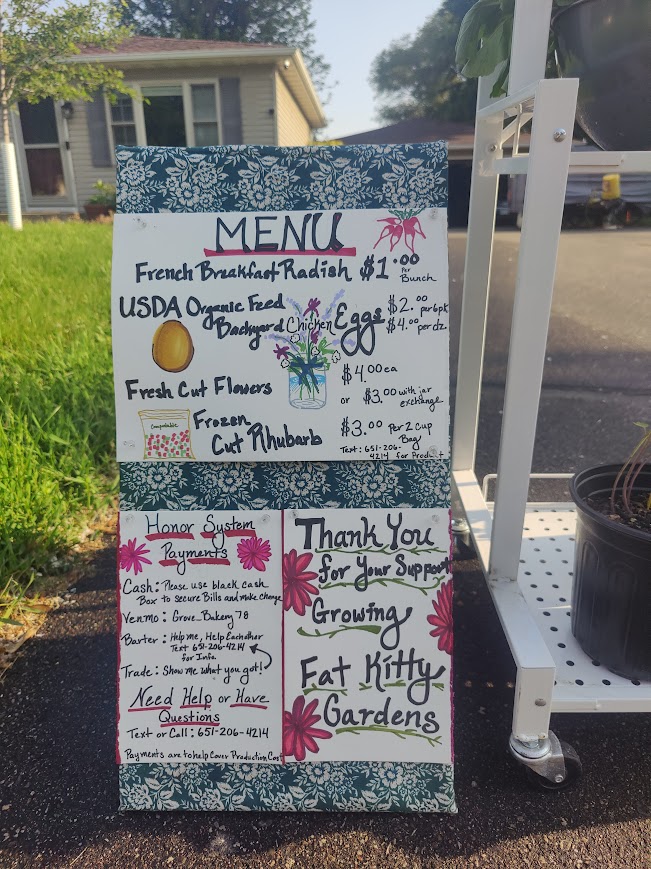 MENU
French Breakfast Radish $1.00 Per Bunch
USDA Organic Feed
Backyard Chicken Eggs
$2.00 per 6pk
$4.00 per dz
Fresh Cut Flowers
$4.00 ea
or $3.00 with jar
exchange
Compostable
Frozen
Cut Rhubarb
$3.00 Per 2 cup
Bag
Text: 651-206-
4214 for Product
Honor System
Payments
Cash: Please use black cash
Box to secure Bills and make change
Venmo: Grove_Bakery 78
Barter: Help me, Help Eachother
Text 651-206-4214
for Info
Trade: Show me what you got!
Need Help or Have
Questions
Text or Call: 651-206-4214
Payments are to help Cover Production Cost
Thank You
for Your Support
Growing
Fat Kitty
Gardens